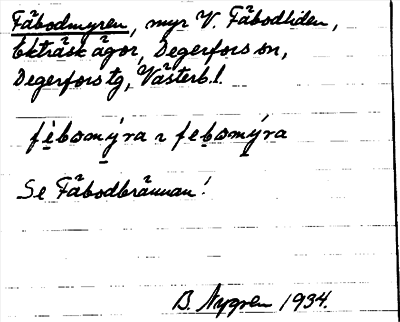 Fäbodmyren, myr V. Fäbodliden,
Ekträsk ägor, Degerfors sn,
Degerfors tg, Västerb. l.
fèbomýra ~ febomýra
Se Fäbodbrännan!
B. Nygren 1934.